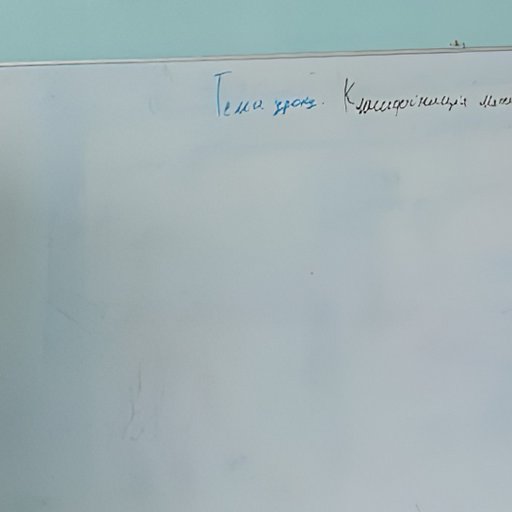 Тема уроку. Класифікація